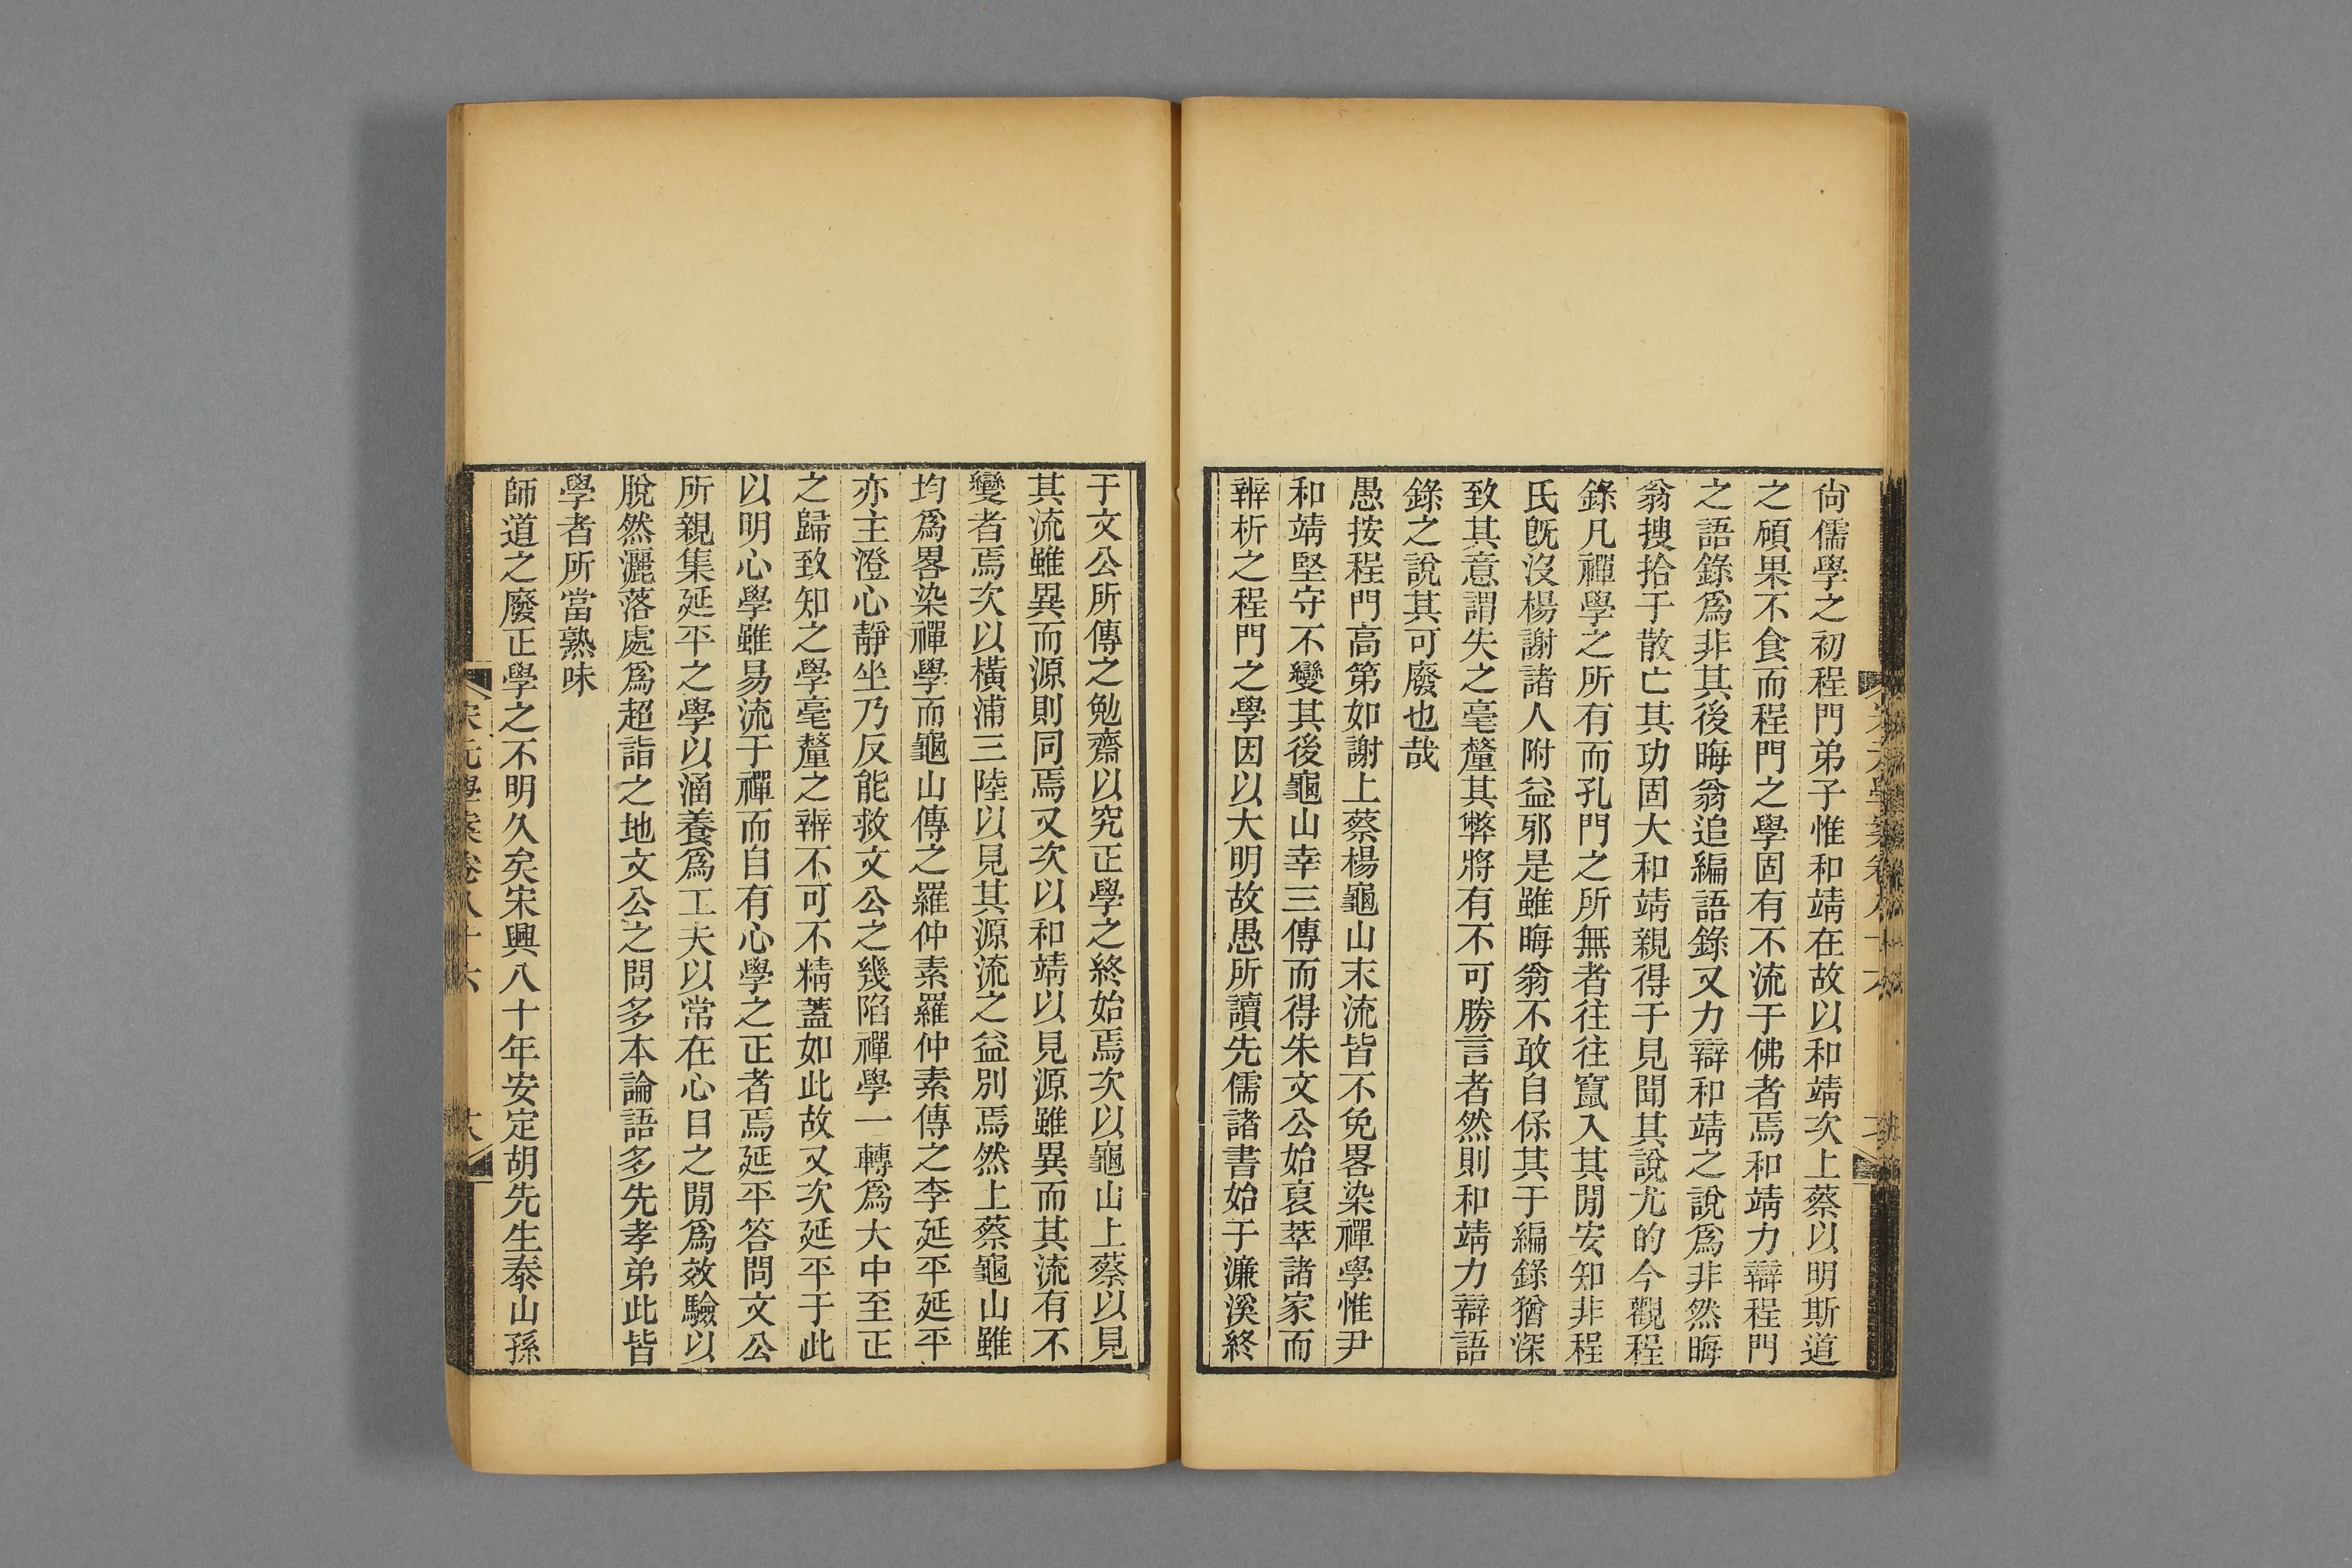 尙儒學之初程門弟子惟和靖在故以和靖次上蔡以明斯道
之碩果不食而程門之學固有不流于佛者焉和靖力辯程門
之語錄爲非其後晦翁追編語錄又力辯和靖之說爲非然晦
翁搜拾于散亡其功固大和靖親得于見聞其說尤的今觀程
錄凡禪學之所有而孔門之所無者往往竄入其閒安知非程
氏旣沒楊謝諸人附益邪是雖晦翁不敢自保其于編錄猶深
致其意謂失之毫釐其弊將有不可勝言者然則和靖力辯語
錄之說其可廢也哉
愚按程門高第如謝上蔡楊龜山末流皆不免畧染禪學惟尹
和靖堅守不變其後龜山幸三傳而得朱文公始裒萃諸家而
辨析之程門之學因以大明故愚所讀先儒諸書始于濂溪終
于文公所傳之勉齋以究正學之終始焉次以龜山上蔡以見
其流雖異而源則同焉又次以和靖以見源雖異而其流有不
變者焉次以橫浦三陸以見其源流之益別焉然上蔡龜山雖
均爲畧染禪學而龜山傳之羅仲素羅仲素傳之李延平延平
亦主澄心靜坐乃反能救文公之幾陷禪學一轉爲大中至正
之歸致知之學毫釐之辨不可不精蓋如此故又次延平于此
以明心學雖易流于禪而自有心學之正者焉延平答問文公
所親集延平之學以涵養爲工夫以常在心目之閒爲效驗以
脫然灑落處爲超詣之地文公之問多本論語多先孝弟此皆
學者所當熟味
師道之廢正學之不明久矣宋興八十年安定胡先生泰山孫
宋元學案卷八十六